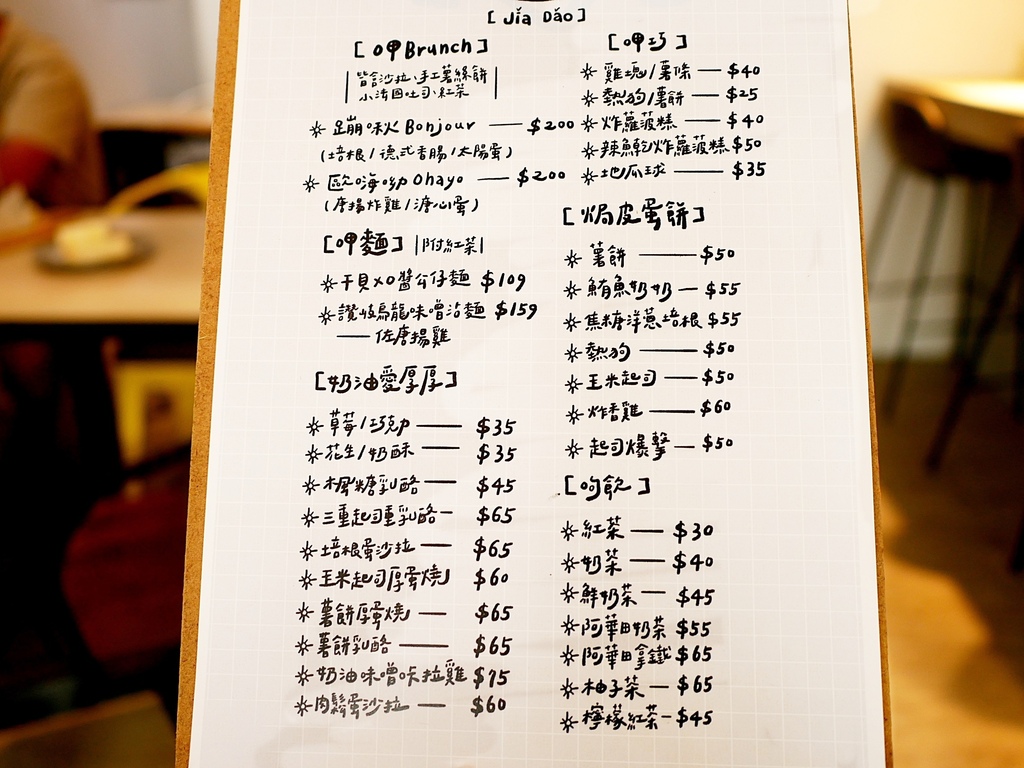 [ Jǐa Dǎo ]
[ 呷Brunch ]
皆含沙拉、手工薯絲餅
小法國吐司、紅茶
蹦啾 Bonjour — $200
(培根/德式香腸/太陽蛋)
歐嗨呦 Ohayo — $200
(唐揚炸雞/溏心蛋)
[呷麵] |附紅茶|
干貝XO醬公仔麵 $109
讚岐烏龍味噌沾麵 $159
— 佐唐揚雞
[奶油愛厚厚]
草莓/巧克力 — $35
花生/奶酥 — $35
楓糖乳酪 — $45
三重起司重乳酪 — $65
培根蛋沙拉 — $65
玉米起司厚蛋燒 $60
薯餅厚蛋燒 — $65
薯餅乳酪 — $65
奶油味噌咔拉雞 $75
肉鬆蛋沙拉 — $60
[ 呷巧 ]
雞塊/薯條 — $40
熱狗/薯餅 — $25
炸蘿蔔糕 — $40
辣魚乾炸蘿蔔糕 $50
地瓜球 — $35
[ 焗皮蛋餅 ]
薯餅 — $50
鮪魚奶奶 — $55
焦糖洋蔥培根 $55
熱狗 — $50
玉米起司 — $50
炸香雞 — $60
起司爆擊 — $50
[ 呴飲 ]
紅茶 — $30
奶茶 — $40
鮮奶茶 — $45
阿華田奶茶 $55
阿華田拿鐵 $65
柚子茶 — $65
檸檬紅茶 - $45